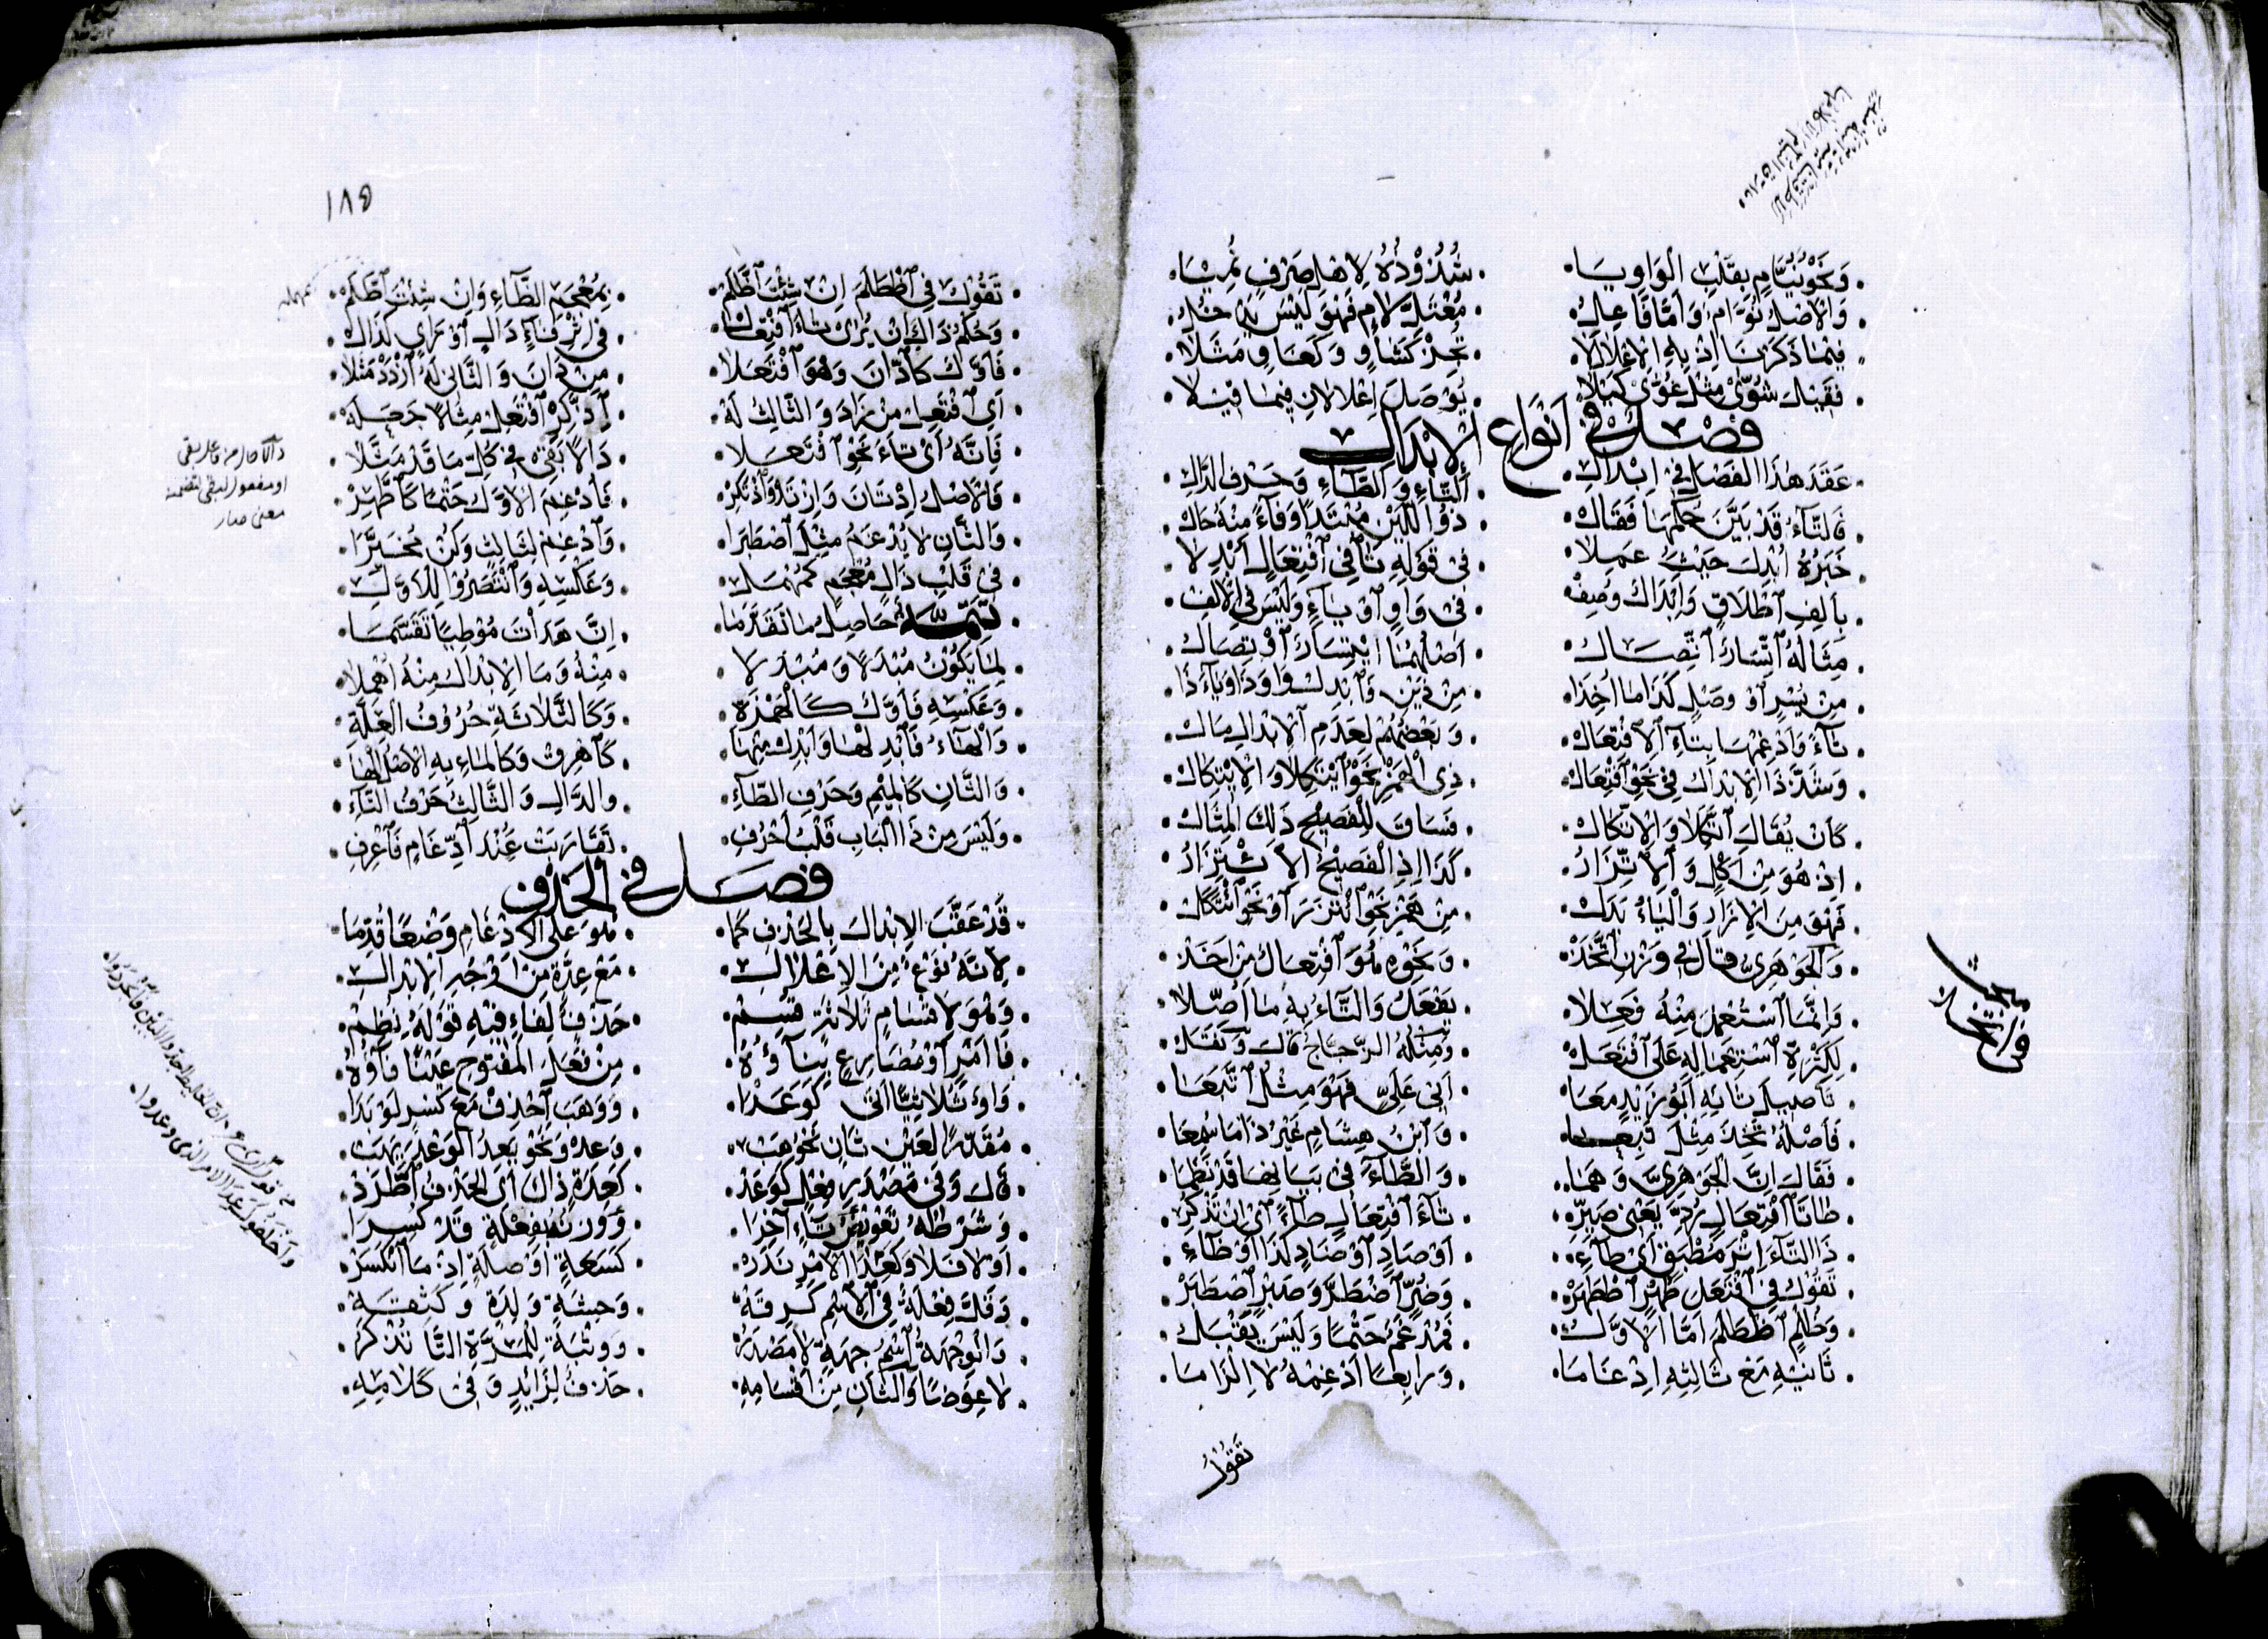 وَنَحْوُ نُيَّامٍ بِقَلْبِ الْوَاوِ يَا . شُذُوْذُهُ لِاهْلِ صَرْفٍ نُمِيَا
وَالْاَصْلُ نُوَّامٌ وَاَمَّا فَاعِلُ . مُعْتَلُّ لَامٍ فَهْوَ لَيْسَ يَدْخُلُ
فِيْمَا ذَكَرْنَا اِذْ بِهِ الْاِعْلَالَا . تَجِزْ كَشَاوٍ وَكَعَاوٍ مَثَلَا
فَقَبْلَ شُوًّى مِثْلُ غُوًّى كَيْلَا . يُوْصَلَ اِعْلَالَانِ فِيْمَا قِيْلَا
فصل في انواع الابدال
عَقَدَ هٰذَا الْفَصْلَ فِيْ اِبْدَالِ . اَلتَّاءِ وَالطَّاءِ وَحَرْفِ الدَّالِ
فَالتَّاءُ قَدْ بَيَّنَ حُكْمَهَا فَقَالْ . ذُوْ اللَّيْنِ مُبْتَدًا وَفَاءً مِنْهُ حَالْ
خَبَرُهُ اُبْدِلَ حَيْثُ عَمِلَا . فِيْ قَوْلِهِ تَا فِي افْتِعَالٍ اُبْدِلَا
بِاَلِفِ اطْلَاقٍ وَاِبْدَالٌ وُصِفْ . فِيْ وَاوٍ اَوْ يَاءٍ وَلَيْسَ فِي الْاَلِفْ
مِثَالُهُ اتِّسَارٌ اتِّصَالُ . اَصْلُهُمَا ايْتِسَارٌ اوْتِصَالُ
مِنْ يُسْرٍ اَوْ وَصْلٍ كَذَا مَا اُخِذَا . مِنْ ذَيْنِ وَابْدِلْ وَاوَ ذَا وَيَاءَ ذَا
تَاءً وَادْغِمْهَا بِتَاءِ الْاِفْتِعَالْ . وَبَعْضُهُمْ لِعَدَمِ الْاِبْدَالِ مَالْ
وَشَذَّ ذَا الْاِبْدَالُ فِيْ نَحْوِ افْتِعَالْ . ذِي الْهَمْزِ نَحْوُ ايْتَكَلَا وَالْاِيْتِكَالْ
كَاَنْ يُقَالَ اتَّكَلَا وَالْاِتِّكَالْ . فَسَاقَ لِلْفَصِيْحِ ذٰلِكَ الْمِثَالْ
اِذْ هُوَ مِنْ اَكْلٍ وَالْاِتِّزَارُ . كَذَا اِذِ الْفَصِيْحُ الْاِيْتِزَارُ
فَهْوَ مِنَ الْاِزَارِ وَالْيَاءُ بَدَلْ . مِنْ هَمْزِ نَحْوِ ائْتَزَرَ اَوْ نَحْوِ ائْتَكَلْ
وَالْجَوْهَرِيُّ قَالَ فِيْ وَزْنِ اتَّخَذْ . وَنَحْوِهِ هُوَ افْتِعَالٌ مِنْ اَخَذْ
وَاِنَّمَا اسْتُعْمِلَ مِنْهُ فَعِلَا . يَفْعَلُ وَالتَّاءُ بِهِ مَا اُصِّلَا
لِكَثْرَةِ اسْتِعْمَالِهِ عَلَى افْتَعَلْ . وَمِثْلُهُ الزَّجَّاجُ قَالَ وَنَقَلْ
تَاصِيْلَ تَائِهِ اَبُوْ زَيْدٍ مَعَا . اَبِيْ عَلِيٍّ فَهْوَ مِثْلُ اتَّبَعَا
فَاَصْلُهُ تَخِذَ مِثْلُ تَبِعَا . وَابْنُ هِشَامٍ غَيْرَ ذَا مَا سُمِعَا
فَقَالَ اِنَّ الْجَوْهَرِيَّ وَهِمَا . وَالطَّاءُ فِيْ بَيَانِهَا قَدْ نَظَمَا
طَا تَا افْتِعَالٍ رُدَّ يَعْنِيْ صَيِّرِ . تَاءَ افْتِعَالٍ طَاءً اَيْ اِنْ تَذْكُرِ
ذَا التَّاءَ اِثْرَ مُطْبَقٍ اَيْ طَاءِ . اَوْ صَادٍ اَوْ ضَادٍ كَذَا اَوْ ظَاءِ
تَقُوْلُ فِي افْتَعَلَ طُهْرٍ اطْطَهَرْ . وَضُرٍّ اضْطَرَّ وَصَبْرٍ اصْطَبَرْ
وَظُلْمٍ اظْطَلَمَ اَمَّا الْاَوَّلُ . فَمُدْغَمٌ حَتْمًا وَلَيْسَ يُقْبَلُ
ثَانِيْهِ مَعْ ثَالِثِهِ اِدْغَامَا . وَرَابِعًا اَدْغِمْهُ لَا اِلْزَامَا
تَقُوْلُ
مبحث
في اتخذ
١٨٥
تَقُوْلُ فِي اظْطَلَمَ اِنْ شِئْتَ اظَّلَمْ . بِمُعْجَمِ الظَّاءِ وَاِنْ شِئْتَ اطَّلَمْ
مهمله
وَحُكْمُ ذَاكَ اِنْ يُرٰى تَاءُ افْتِعَالْ . فِيْ اِثْرِ فَاءٍ دَالٍ اَوْ زَايٍ كَذَالْ
فَاَوَّلٌ كَادَّانَ وَهْوَ افْتَعَلَا . مِنْ دَانَ وَالثَّانِيْ لَهُ ازْدَدْ مَثَلَا
اَيْ افْتَعِلْ مِنْ زَادَ وَالثَّالِثُ لَهْ . اِدَّكِرْ افْتَعِلْ مِثَالًا جَعَلَهْ
فَاِنَّهُ اَيْ تَاءَ نَحْوِ افْتَعَلَا . دَالًا بَقِيْ فِيْ كُلِّ مَا قَدْ مَثَّلَا
فَالْاَصْلُ اِدْتَانَ وَازْتَدْ وَاذْتَكِرْ . فَادْغِمَ الْاَوَّلُ حَتْمًا كَاطَّهِرْ
وَالثَّانِ لَا يُدْغَمُ مِثْلَ اصْطَبَرَا . وَادْغِمْ لِثَالِثٍ وَكُنْ مُخَيَّرَا
فِيْ قَلْبِ ذَالٍ مُعْجَمٍ كَمُهْمَلِ . وَعَكْسِهِ وَانْتَصَرُوْا لِلْاَوَّلِ
تَتِمَّةٌ حَاصِلُ مَا تَقَدَّمَا . اِنَّ هَدَاْتَ مُوْطِيًا تَقَسَّمَا
لِمَا يَكُوْنُ مُبْدَلًا وَمُبْدَلَا . مِنْهُ وَمَا الْاِبْدَالُ مِنْهُ اُهْمِلَا
وَعَكْسِهِ فَاَوَّلٌ كَالْهَمْزَةِ . وَكَالثَّلَاثَةِ حُرُوْفُ الْعِلَّةِ
وَالْهَاءُ فَابْدِلْهَا وَابْدِلْ مِنْهَا . كَاَهْرِقْ وَكَالْمَاءِ بِهِ الْاَصْلُ الْهَا
وَالثَّانِ كَالْمِيْمِ وَحَرْفِ الطَّاءِ . وَالدَّالِ وَالثَّالِثُ حَرْفُ التَّاءِ
وَلَيْسَ مِنْ ذَا الْبَابِ قَلْبُ اَحْرُفِ . تَقَارَبَتْ عِنْدَ ادِّغَامٍ فَاعْرِفِ
فصل في الحذف
قَدْ عَقَّبَ الْاِبْدَالَ بِالْحَذْفِ كَمَا . هُوَ عَلَى الْاِدْغَامِ وَضْعًا قُدِّمَا
لِاَنَّهُ نَوْعٌ مِنَ الْاِعْلَالِ . مَعْ عِدَّةٍ مِنْ اَوْجُهِ الْاِبْدَالِ
وَهْوَ لِاَقْسَامٍ ثَلَاثَةٍ قُسِمْ . حَذْفٌ لِفَاءٍ فِيْهِ قَوْلُهُ نُظِمْ
فَا اَمْرٍ اَوْ مُضَارِعٍ بِنَاؤُهُ . مِنْ فَعَلَ الْمَفْتُوْحِ عَيْنًا فَاؤُهُ
وَاوٌ ثُلَاثِيًّا اَتٰى كَوَعَدَا . وَوَهَبَ احْذِفْ مَعَ كَسْرٍ لَوْ بَدَا
مُقَدَّرًا لِعَيْنِ ثَانٍ نَحْوُ هَبْ . وَعِدْ وَنَحْوُ يَعِدُ الْوَعْدَ يَهَبْ
قَالَ وَفِيْ مَصْدَرِ فِعْلٍ كَوَعَدْ . كَعِدَةٍ ذَاكَ اَيِ الْحَذْفُ اطَّرَدْ
وَشَرْطُهُ تَعْوِيْضُ تَاءٍ آخِرَا . وَوَزْنُهُ فِعْلَةٍ قَدْ كُسِرَا
اَوْ لَا فَلَا وَكَعِدَا الْاَمْرِ نَدَرْ . كَسَعَةٍ اَوْ صِلَةٍ اِذْ مَا انْكَسَرْ
وَقَلَّ فِعْلَةٌ فِي الْاِسْمِ كَرِقَهْ . وَحِشَةٍ وَلِدَةٍ وَكَثِقَهْ
وَالْوِجْهَةُ اسْمُ جِهَةٍ لَا مَصْدَرُ . وَوَثْبَةٍ لِلْمَرَّةِ التَّا تُذْكَرُ
لَا عِوَضًا وَالثَّانِ مِنْ اَقْسَامِهِ . حَذْفٌ لِزَائِدٍ وَفِيْ كَلَامِهِ
دالا حال من فاعل بقي
او مفعول لبقي لتضمنه
معنى صار
واخلفوك عد الامر الذي وعدوا